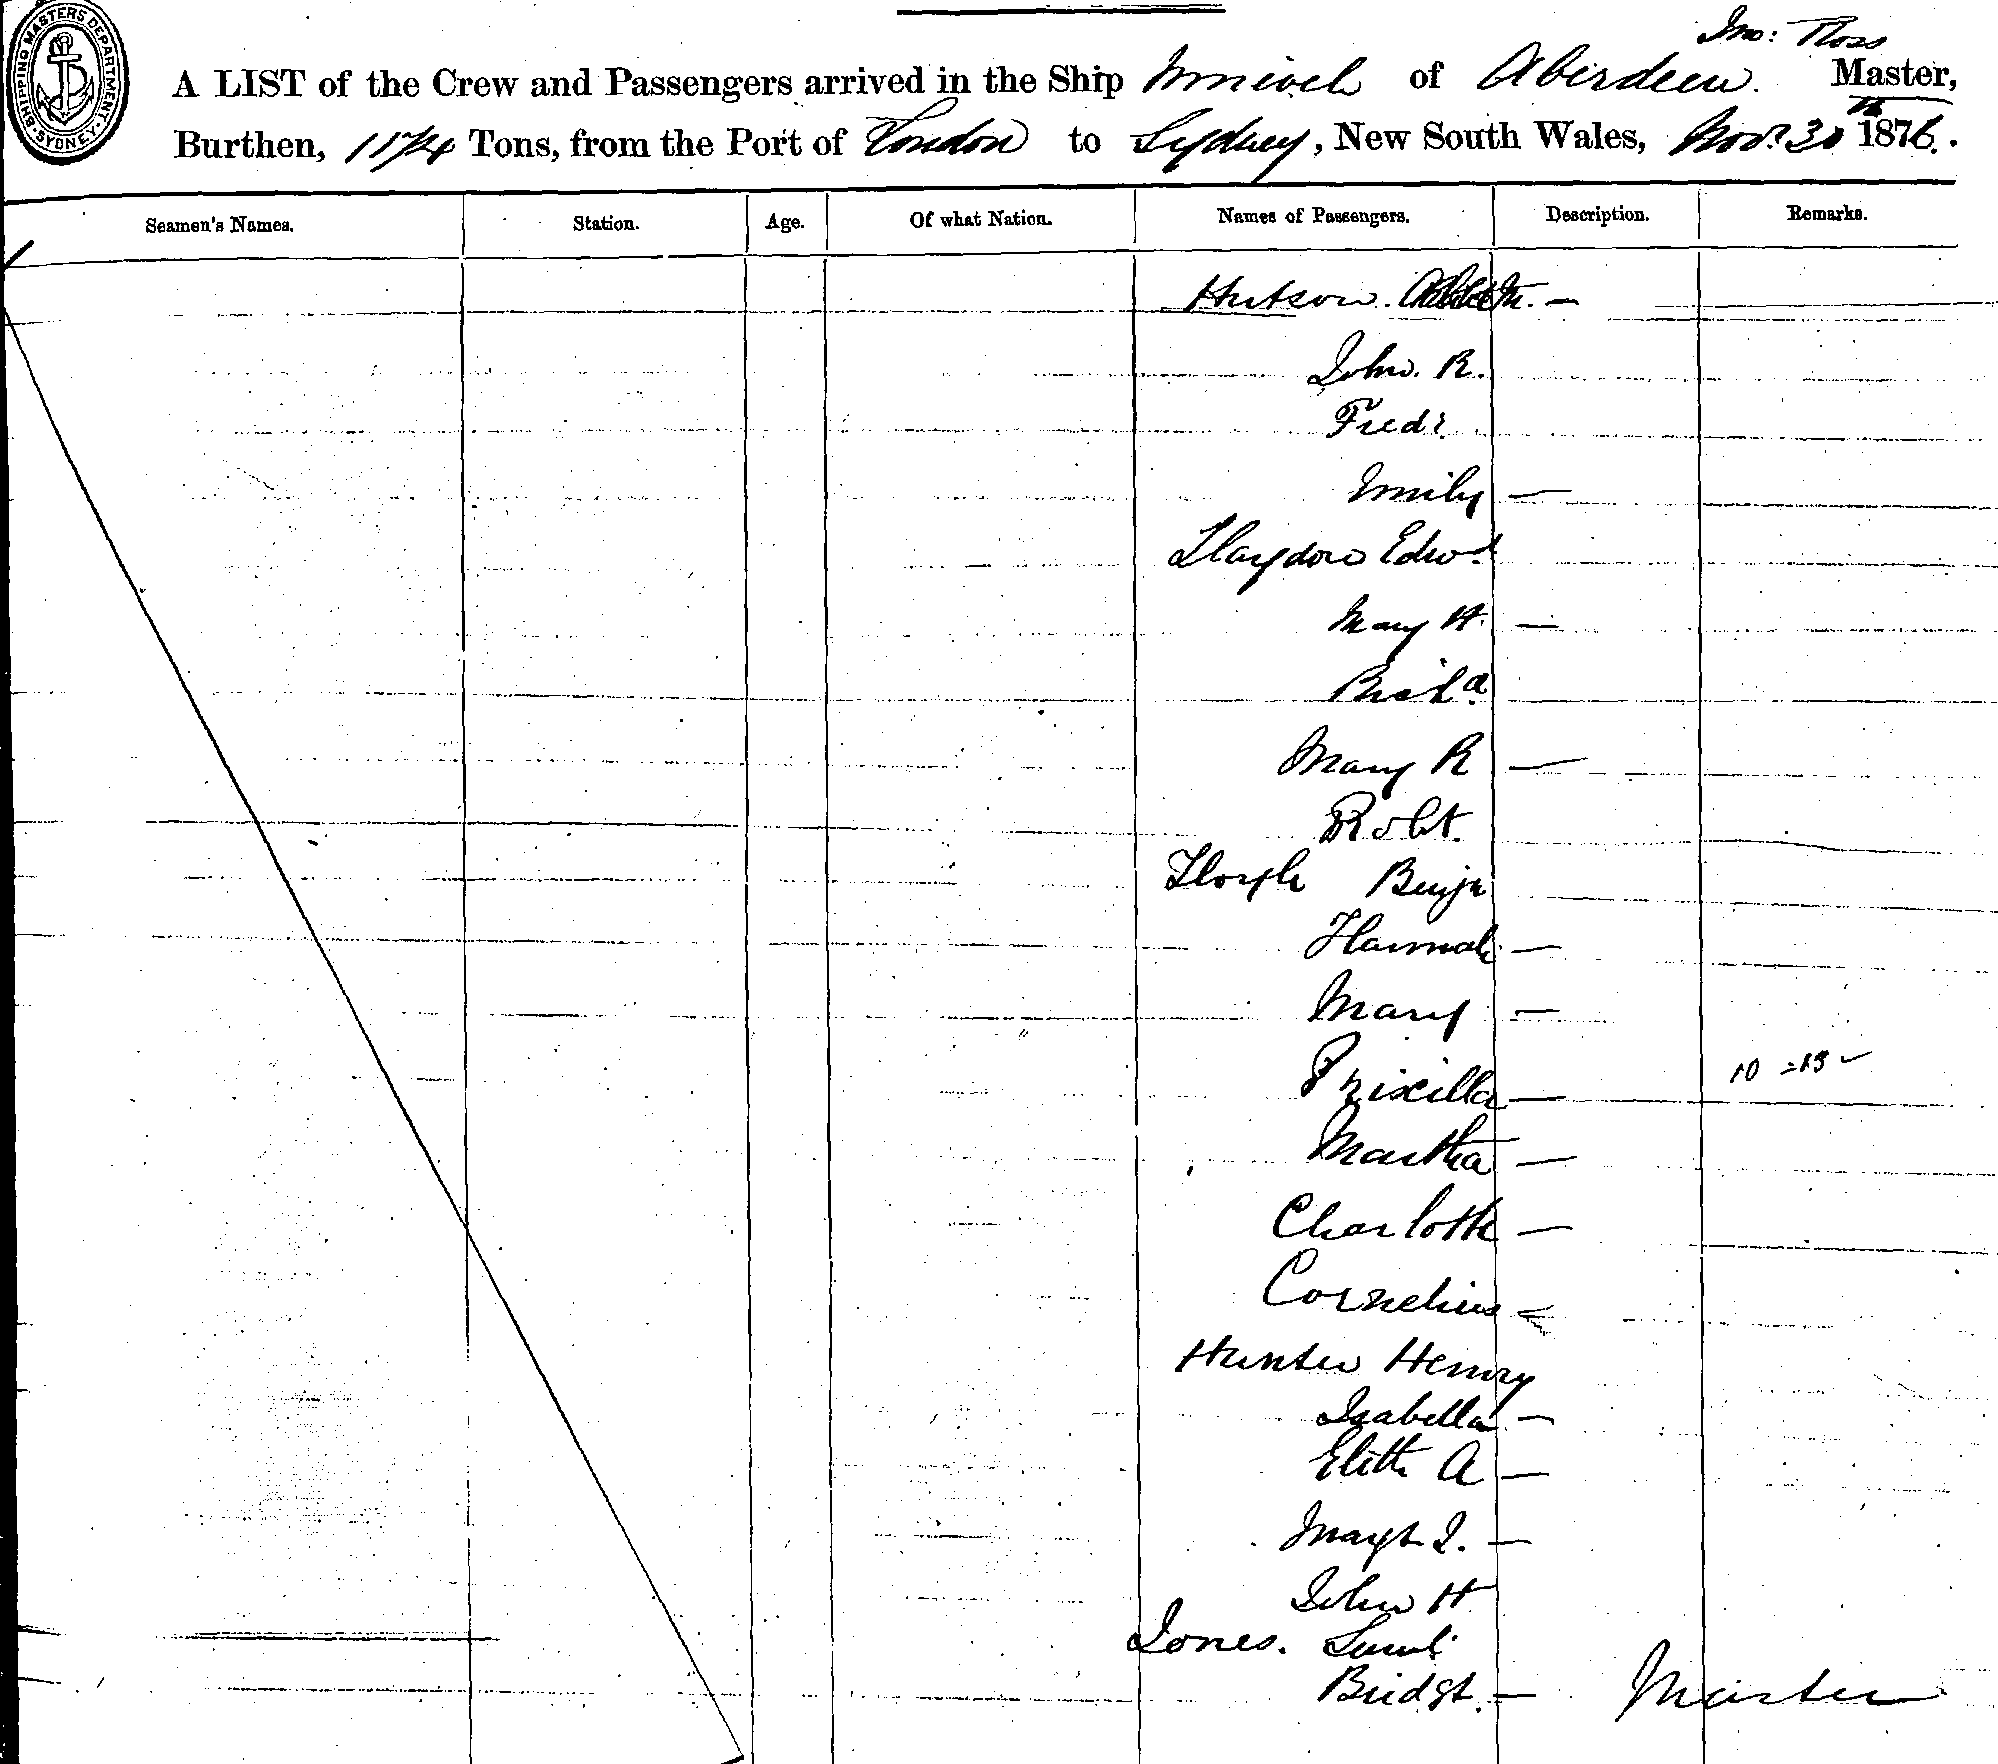 SHIPPING MASTERS DEPARTMENT
SYDNEY
Jno: Ross
A LIST of the Crew and Passengers arrived in the Ship of Aberdeen. Master,
Burthen, 1174 Tons, from the Port of London to Sydney, New South Wales, Novr. 30th 1876.
Seamen's Names. Station. Age. Of what Nation. Names of Passengers. Description. Remarks.
Hutson. —
John. R.
Fredr.
Emily —
Edwd.
Mary H. —
Richd.
Mary R —
Robt.
Benjn
Hannah —
Mary —
Priscilla — 10 = 13
Martha —
Charlotte —
Cornelius
Hunter Henry
Isabella —
Elith A —
Margt. I. —
John H
Jones. Saml.
Bridgt. — Master